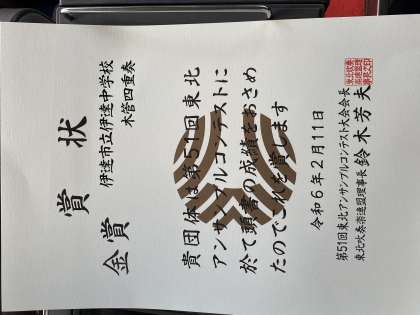 賞状
金賞
伊達市立伊達中学校
木管四重奏
貴団体は第51回東北
アンサンブルコンテストに
於て頭書の成績をおさめ
たのでこれを賞します
令和6年2月11日
第51回東北アンサンブルコンテスト大会会長
東北吹奏楽連盟理事長 鈴木芳夫